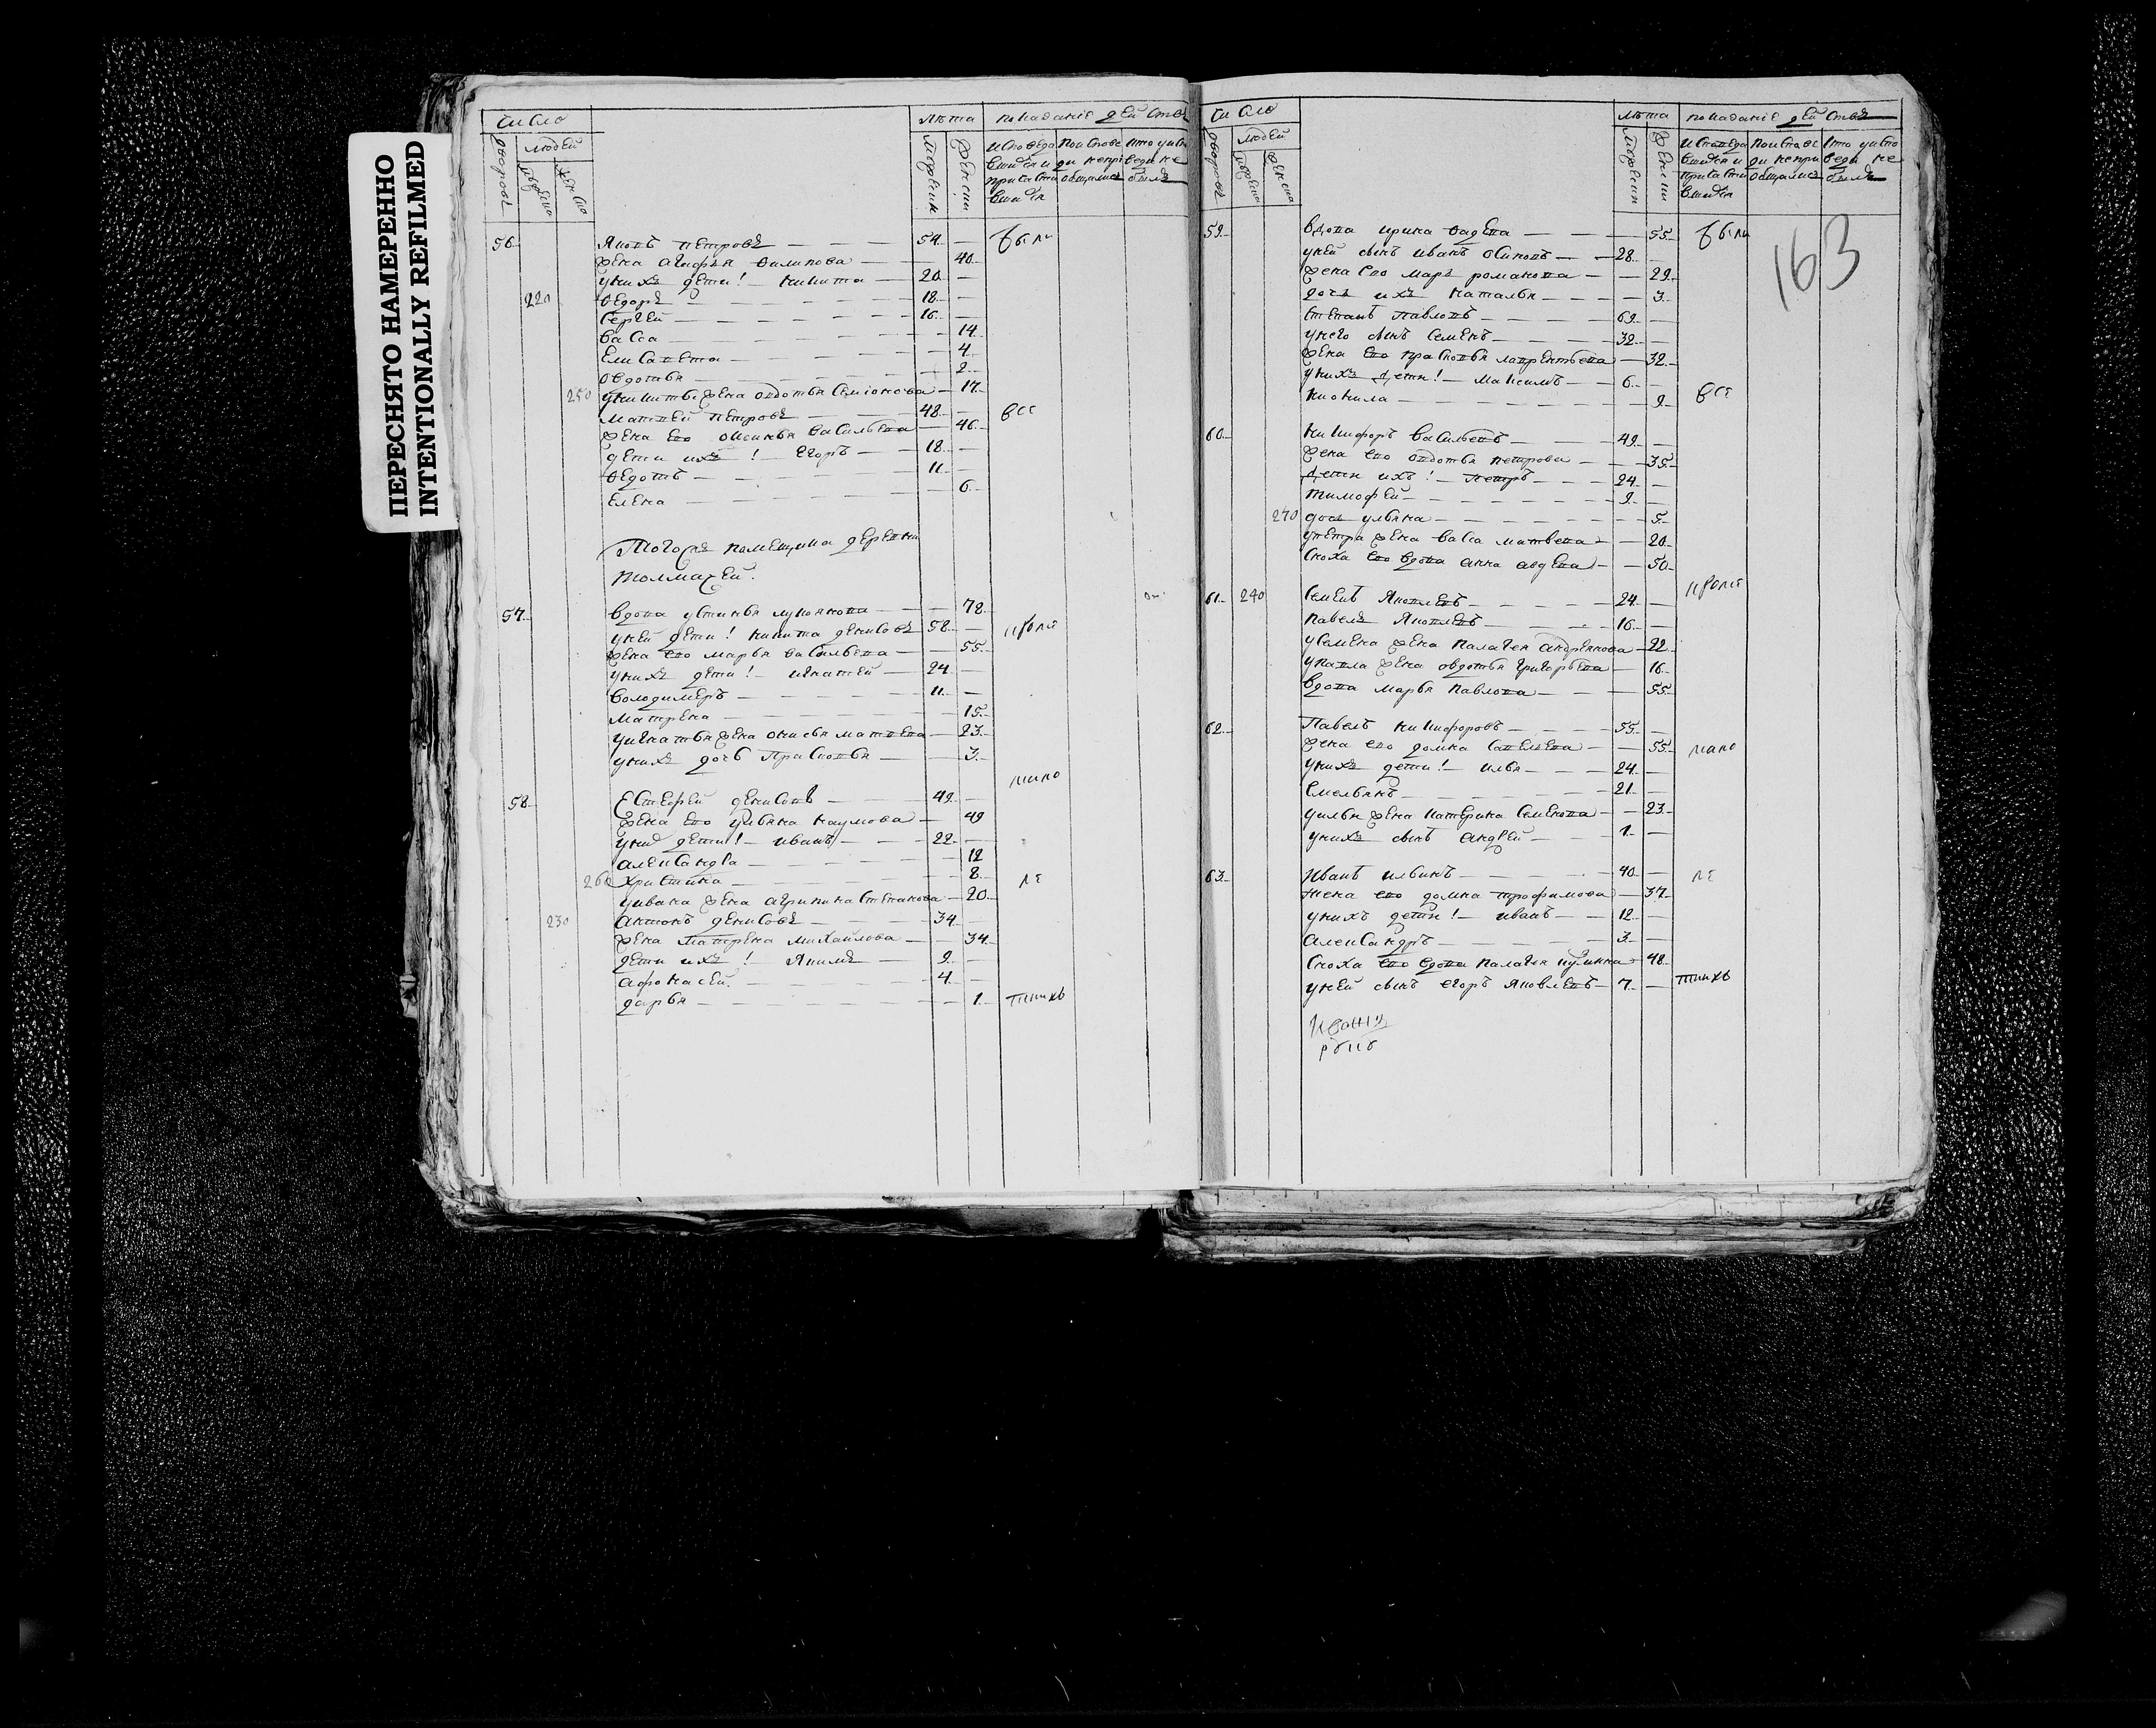 ПЕРЕСНЯТО НАМЕРЕННО
INTENTIONALLY REFILMED
число
людей
дворовъ
лѣта
показаніе действъ
56. Яковъ петровъ 54
жена агафья филипова 40
у нихъ дети! никита 20
220 Федоръ 18
Сергей 16
васса 14
Елисавета 4
овдотья 2
250 у никиты жена овдотья Семіонова 17
матвей петровъ 48
жена ево оксинья васильева 46
дети ихъ! егоръ 18
Федотъ 11
елена 6
были
все
Того же помещика деревни
толмачей.
57. вдова устинья лукоянова 78
у ней дети! никита денисовъ 58
жена ево марья васильева 55
у нихъ дети! игнатей 24
володимеръ 11
матрена 15
у игнатья жена онисья матвева 23
у нихъ дочь Прасковья 3
58. Естефей денисовъ 49
жена ево ульяна наумова 49
у них дети! иванъ 22
александра 12
260 христина 8
у ивана жена агрипина степанова 20
230 антонъ денисовъ 34
жена матрена михаилова 34
дети ихъ! якимъ 9
афонасей 4
дарья 1
кроме
мало
ле
тнихъ
число
людей
дворовъ
лѣта
показаніе действъ
163
59. вдова ирина фадеева 55
у ней сынъ иванъ осиповъ 28
жена ево марья романова 29
дочь ихъ наталья 3
степанъ павловъ 69
у него сынъ семенъ 32
жена ево прасковья лаврентьева 32
у нихъ дети! максимъ 6
неонила 9
60. никифоръ васильевъ 49
жена ево овдотья петрова 35
дети ихъ! петръ 24
тимофей 9
270 дочь ульяна 5
у петра жена васса матвева 20
сноха ево вдова анна авдеева 50
61. 240 семенъ яковлевъ 24
павелъ яковлевъ 16
у семена жена палагея андреянова 22
у павла жена овдотья григорьева 16
вдова марья павлова 55
62. Павелъ никифоровъ 55
жена ево домна савельева 55
у нихъ дети! илья 24
емельянъ 21
у ильи жена катерина семенова 23
у нихъ сынъ андрей 1
63. Иванъ ильинъ 40
жена ево домна трофимова 37
у нихъ дети! иванъ 12
александръ 3
сноха ево вдова палагея 48
у ней сынъ егоръ яковлевъ 7
были
все
кроме
мало
ле
тнихъ